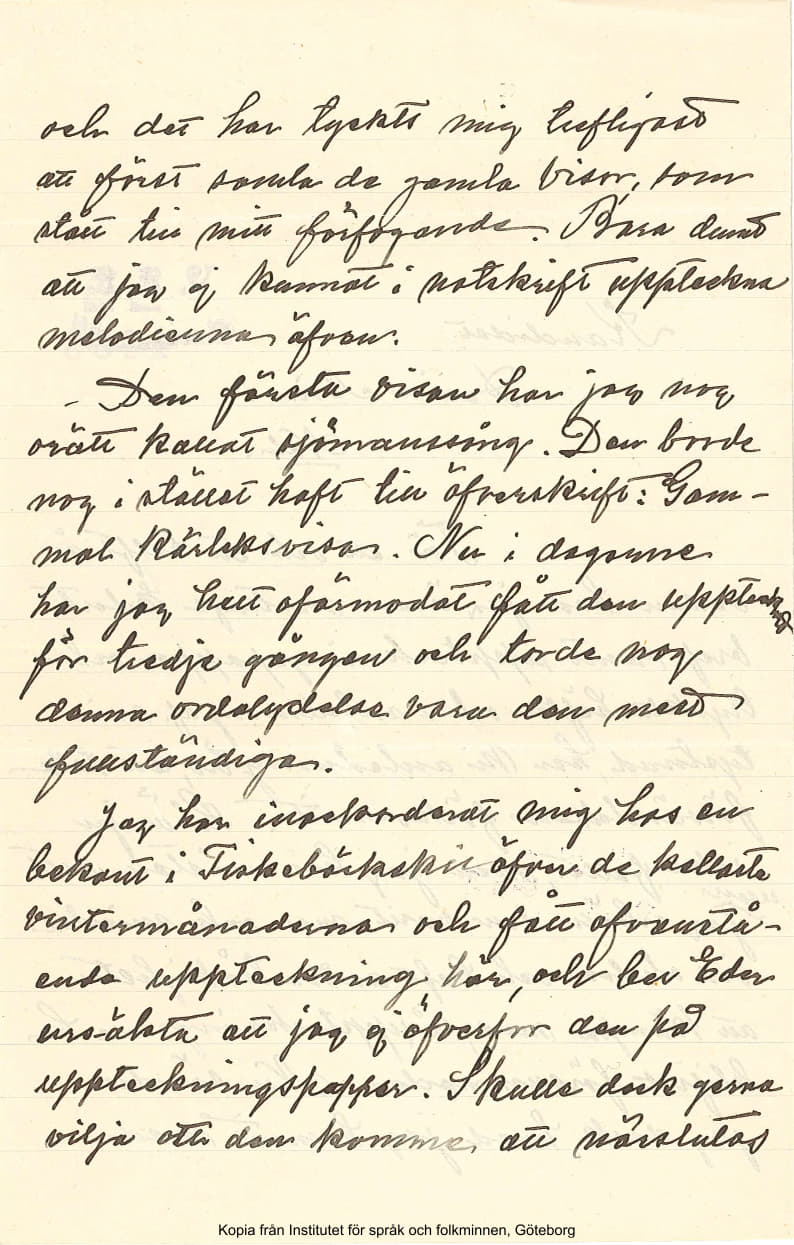 och det har tyckts mig trefligast
att först samla de gamla visor, som
stått till mitt förfogande. Bara dumt
att jag ej kunnat i notskrift uppteckna
melodierna äfven.
- Den första visan har jag nog
orätt kallat sjömanssång. Den borde
nog i stället haft till öfverskrift: Gam-
mal Kärleksvisa. Nu i dagarne
har jag helt oförmodat fått den upptecknad
för tredje gången och torde nog
denna ordalydelse vara den mest
fullständiga.
Jag har inackorderat mig hos en
bekant i Fiskebäckskil öfver de kallaste
vintermånaderna och fått ofvanstå-
ende uppteckning här, och ber Eder
ursäkta att jag ej öfverför den på
uppteckningspapper. Skulle dock gerna
vilja att den komme att närslutas
Kopia från Institutet för språk och folkminnen, Göteborg